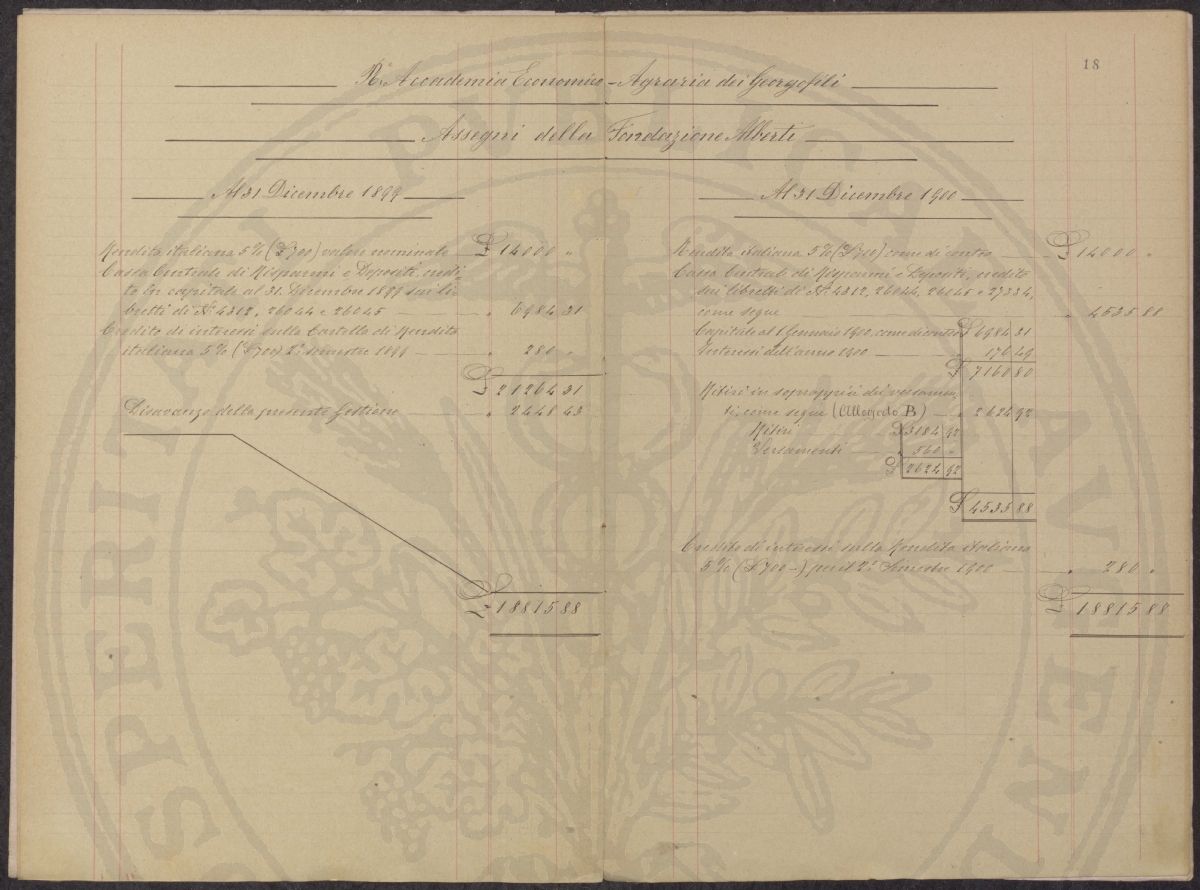 18
R. Accademia Economico-Agraria dei Georgofili
Assegni della Fondazione Alberti
Al 31 Dicembre 1899
Rendita italiana 5% (£700) valore nominale £ 14000 "
Cassa Centrale di Risparmi e Depositi, credi-
to in capitale al 31 Dicembre 1899 sui li-
bretti di N. 4312, 26044 e 26045 " 6984 31
Credito di interessi sulla Cartella di Rendita
italiana 5% (£700) 2° semestre 1899 " 280 "
£ 21264 31
Disavanzo della presente Gestione " 2448 43
£ 18815 88
Al 31 Dicembre 1900
Rendita italiana 5% (£700) come di contro £ 14000 "
Cassa Centrale di Risparmi e Depositi, credito
sui libretti di N. 4312, 26044, 26045 e 27334,
come segue " 4535 88
Capitale al 1 Gennaio 1900, come di contro £ 6984 31
Interessi dell'anno 1900 " 176 49
£ 7160 80
Ritiri in soprappiù dei versamen-
ti come segue (Allegato B) " 2624 92
Ritiri £ 3184 92
Versamenti " 560 "
£ 2624 92
£ 4535 88
Credito di interessi sulla Rendita italiana
5% (£700-) per il 2° Semestre 1900 " 280 "
£ 18815 88
PROSPERITATI PUBLICAE AVGENDAE